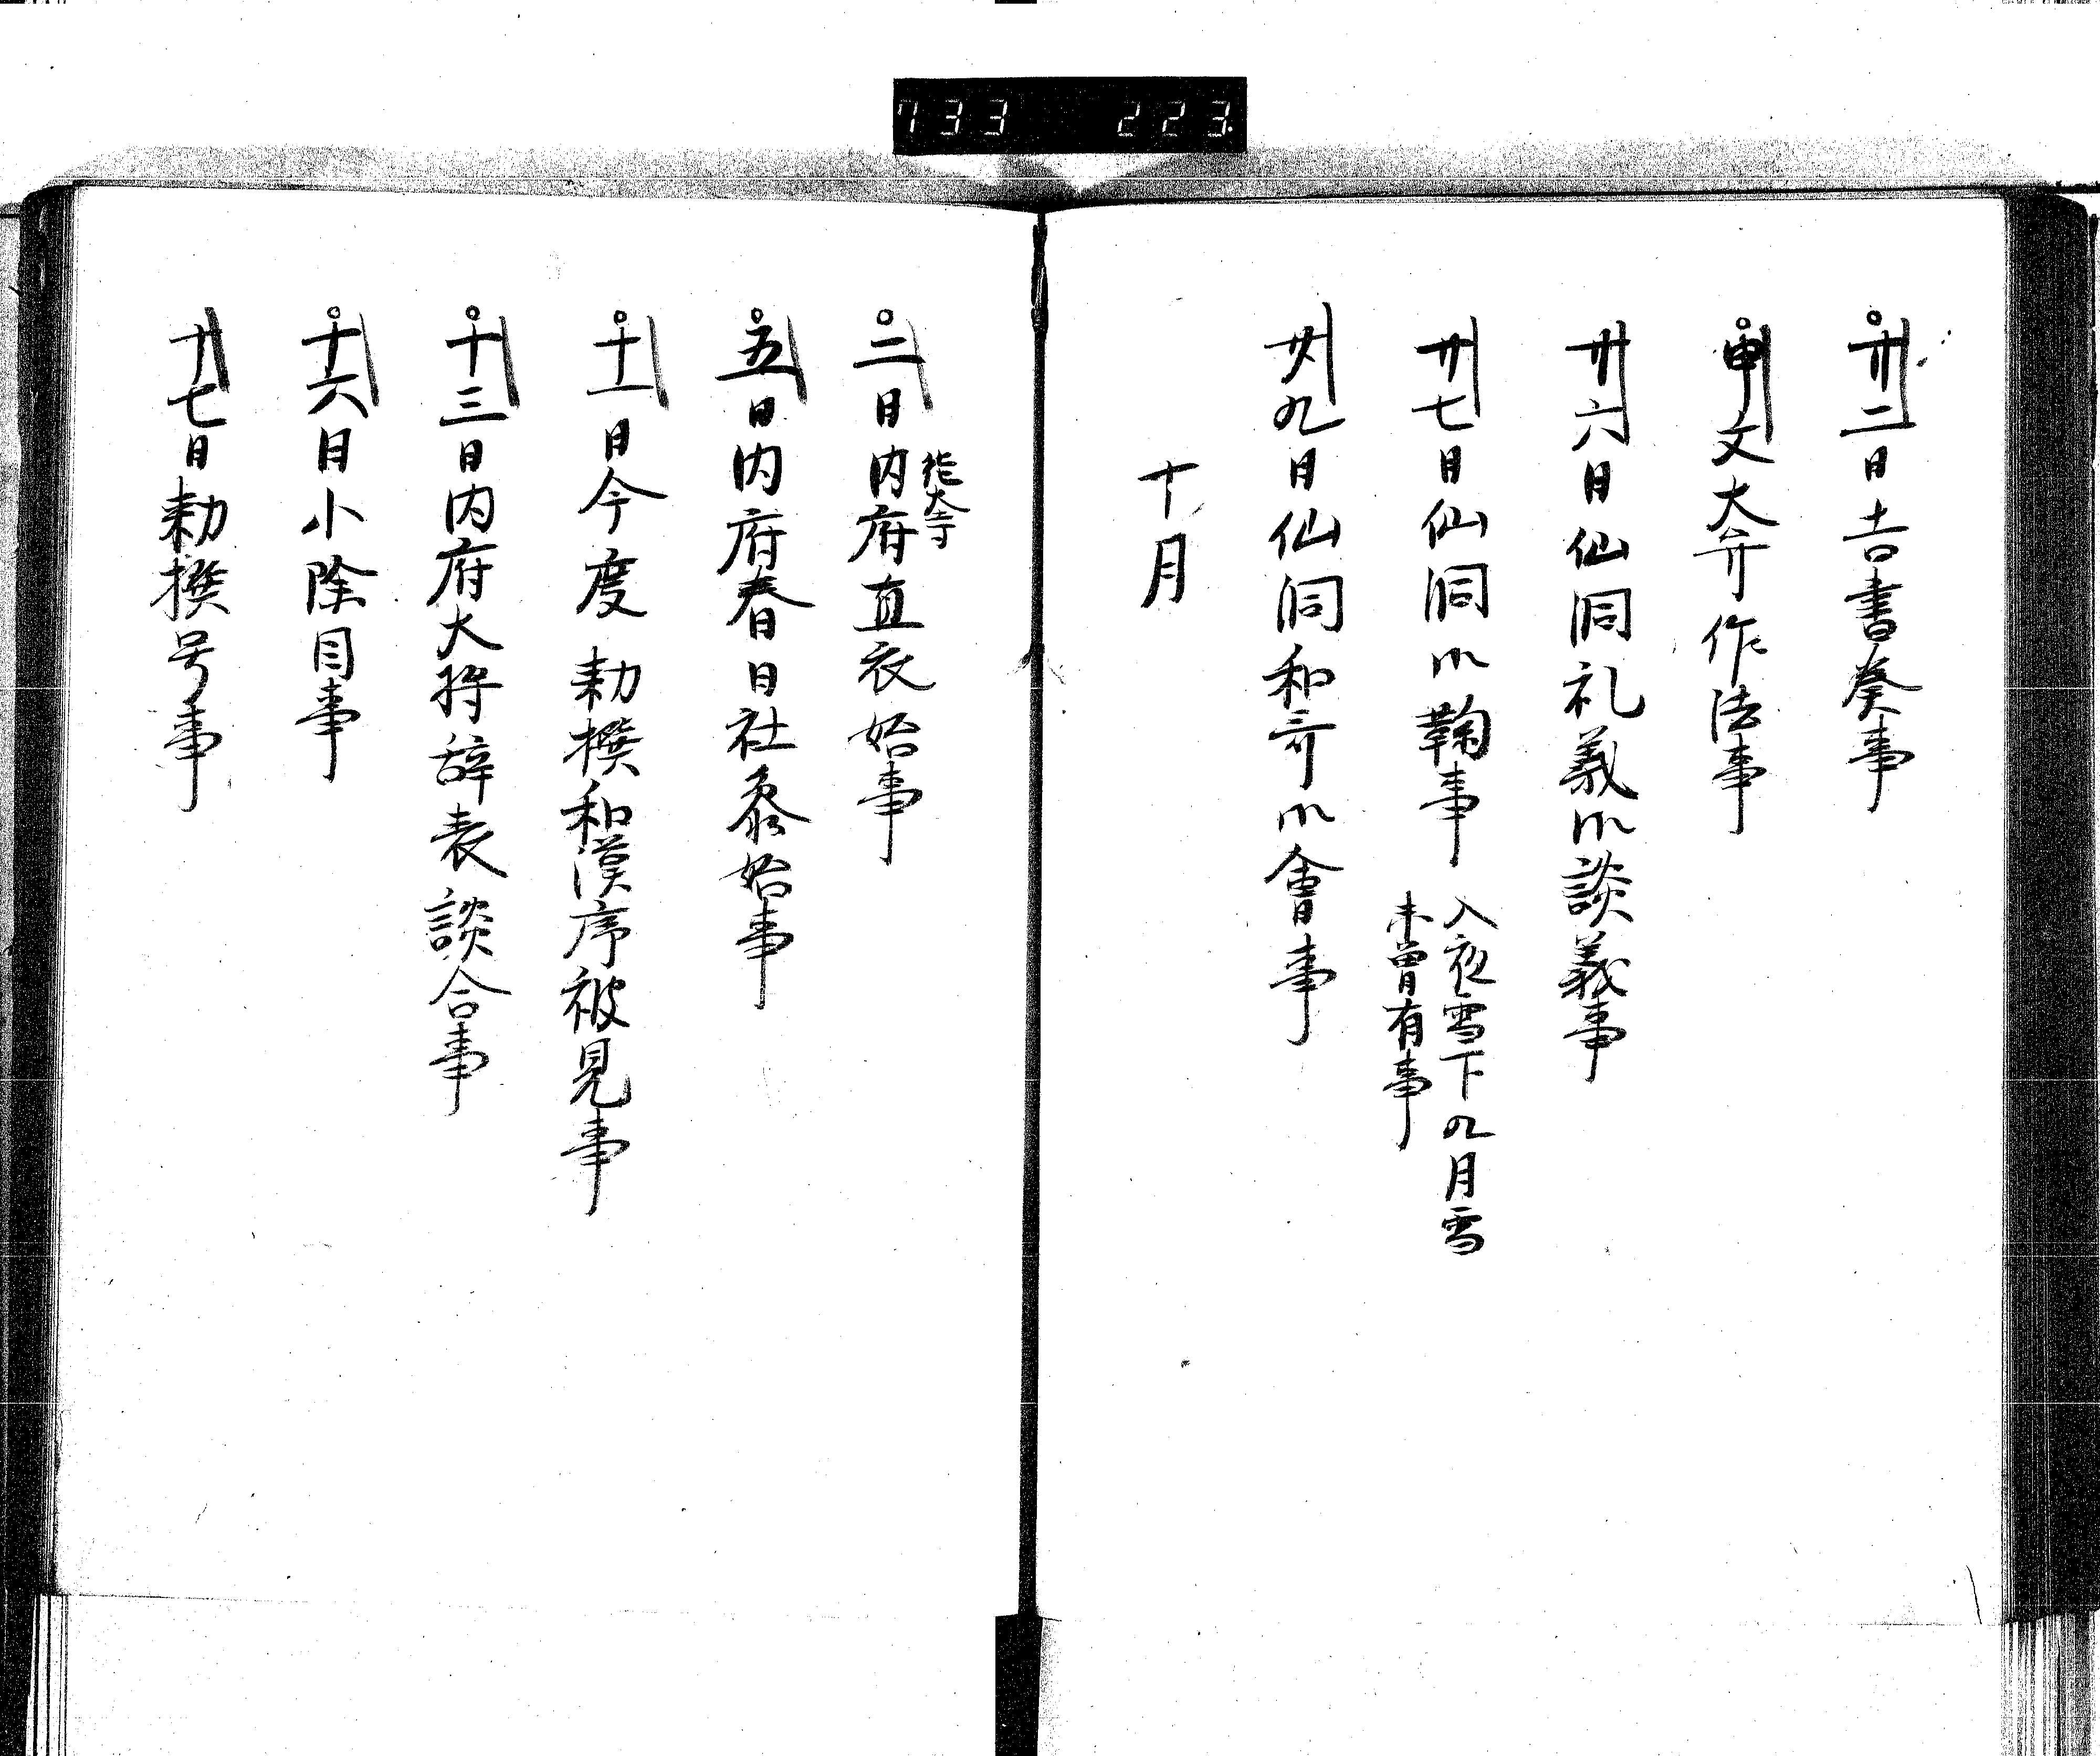 733 223
廿二日吉書奏事
申文大弁作法事
廿六日仙洞礼義御談義事
廿七日仙洞御鞠事
入夜雪下九月雪
未曽有事
廿九日仙洞和哥御會事
十月
二日内府直衣始事
徳大寺
五日内府春日社参始事
十一日今度勅撰和漢序被見事
十三日内府大将辞表談合事
十六日小除目事
十七日勅撰号事